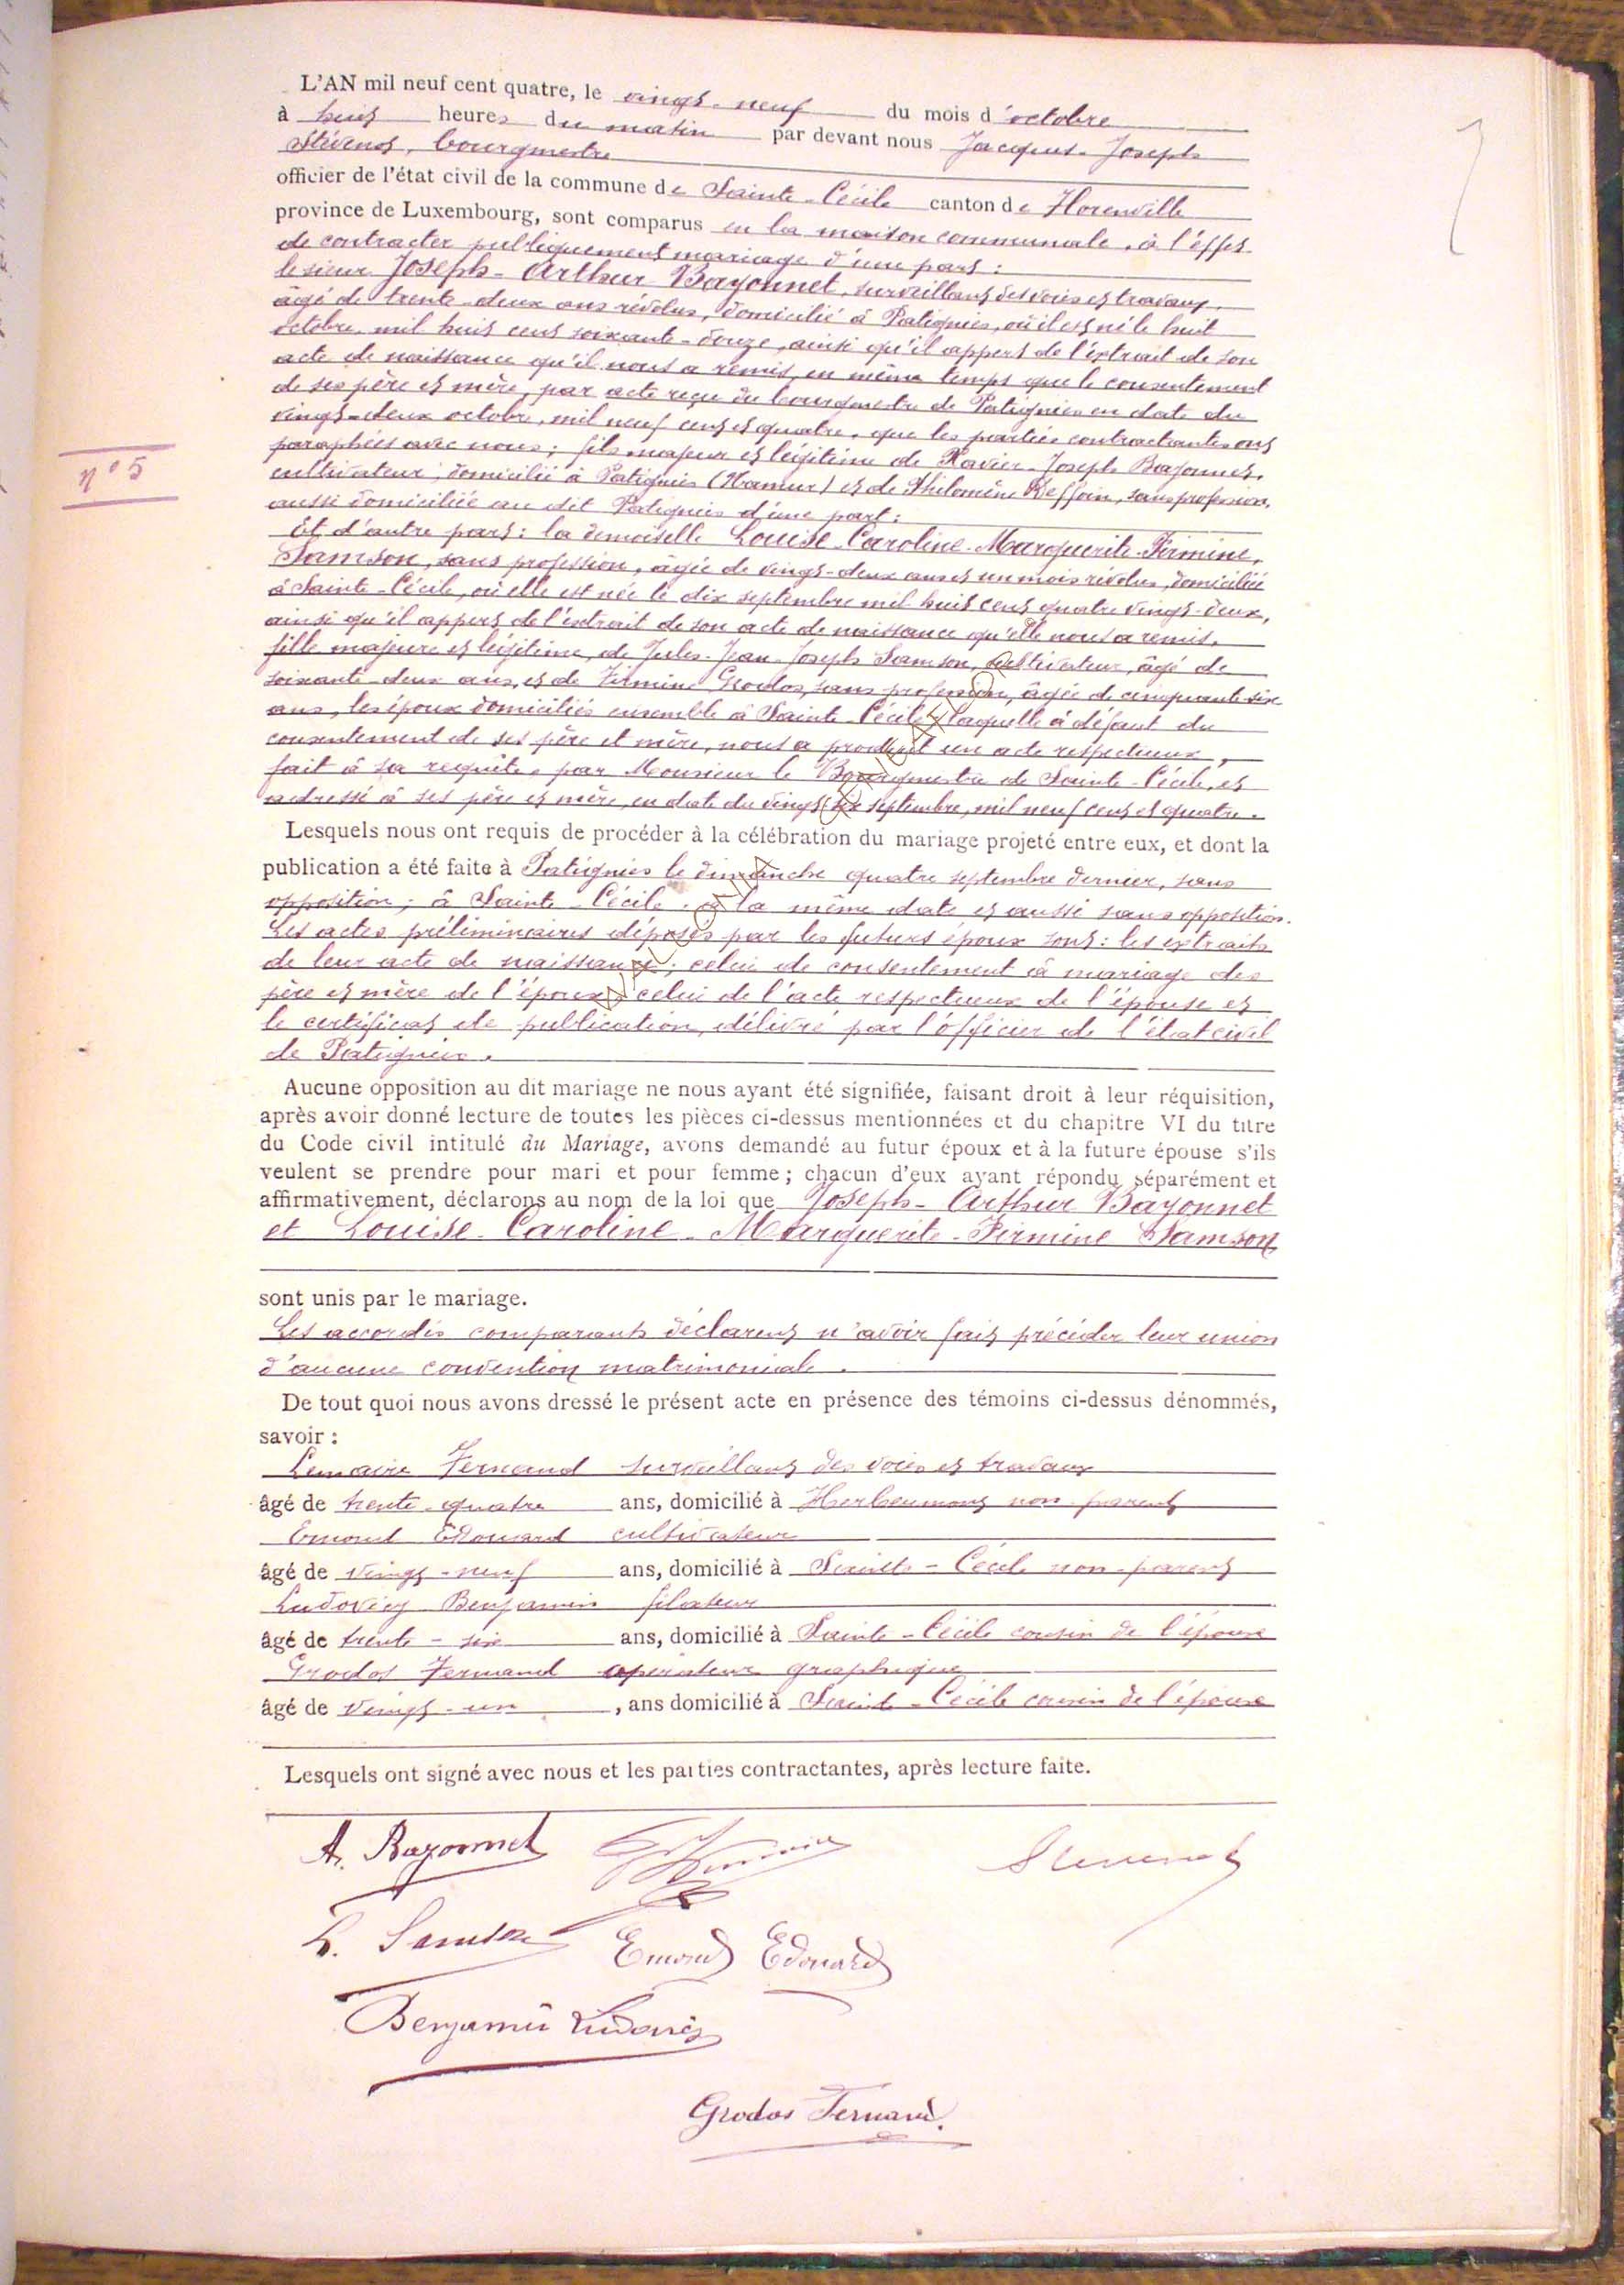 L'AN mil neuf cent quatre, le vingt-neuf du mois d'octobre
à huit heures du matin par devant nous Jacques-Joseph
Stévenot, bourgmestre
officier de l'état civil de la commune de Sainte-Cécile canton de Florenville
province de Luxembourg, sont comparus en la maison communale, à l'effet
de contracter publiquement mariage d'une part:
le sieur Joseph-Arthur Bayonnet, surveillant des voies et travaux,
âgé de trente-deux ans révolus, domicilié à Patignies, où il est né le huit
octobre mil huit cent soixante-douze, ainsi qu'il appert de l'extrait de son
acte de naissance qu'il nous a remis, en même temps que le consentement
de ses père et mère, par acte reçu du bourgmestre de Patignies en date du
vingt-deux octobre, mil neuf cent et quatre, que les parties contractantes ont
paraphées avec nous; fils majeur et légitime de Xavier-Joseph Bayonnet,
n° 5
cultivateur, domicilié à Patignies (Namur) et de Philomène, sans profession,
aussi domiciliée au dit Patignies d'une part;
Et d'autre part: la demoiselle Louise-Caroline-Marguerite-Firmine,
Samson, sans profession, âgée de vingt-deux ans et un mois révolus, domiciliée
à Sainte-Cécile, où elle est née le dix septembre mil huit cent quatre vingt-deux,
ainsi qu'il appert de l'extrait de son acte de naissance qu'elle nous a remis,
fille majeure et légitime, de Jules-Jean-Joseph Samson, cultivateur, âgé de
soixante-deux ans, et de Firmine Grodos, sans profession, âgée de cinquante-six
ans, les époux domiciliés ensemble à Sainte-Cécile, laquelle à défaut du
consentement de ses père et mère, nous a produit un acte respectueux,
fait à sa requête, par Monsieur le Bourgmestre de Sainte-Cécile, et
adressé à ses père et mère, en date du vingt six septembre, mil neuf cent et quatre.
Lesquels nous ont requis de procéder à la célébration du mariage projeté entre eux, et dont la
publication a été faite à Patignies le dimanche quatre septembre dernier, sans
opposition; à Sainte-Cécile, à la même date et aussi sans opposition.
Les actes préliminaires déposés par les futurs époux sont: les extraits
de leur acte de naissance; celui de consentement à mariage des
père et mère de l'époux celui de l'acte respectueux de l'épouse et
le certificat de publication, délivré par l'officier de l'état civil
de Patignies.
Aucune opposition au dit mariage ne nous ayant été signifiée, faisant droit à leur réquisition,
après avoir donné lecture de toutes les pièces ci-dessus mentionnées et du chapitre VI du titre
du Code civil intitulé du Mariage, avons demandé au futur époux et à la future épouse s'ils
veulent se prendre pour mari et pour femme; chacun d'eux ayant répondu séparément et
affirmativement, déclarons au nom de la loi que Joseph-Arthur Bayonnet
et Louise-Caroline-Marguerite-Firmine Samson
sont unis par le mariage.
Les accordés comparants déclarent n'avoir fait précéder leur union
d'aucune convention matrimoniale.
De tout quoi nous avons dressé le présent acte en présence des témoins ci-dessus dénommés,
savoir:
Lemaire Fernand surveillant des voies et travaux
âgé de trente-quatre ans, domicilié à Herbeumont non-parent
Emond Edouard cultivateur
âgé de vingt-neuf ans, domicilié à Sainte-Cécile non-parent
Ludovicy Benjamin filateur
âgé de trente-six ans, domicilié à Sainte-Cécile cousin de l'épouse
Grodos Fernand opérateur graphique
âgé de vingt-un, ans domicilié à Sainte-Cécile cousin de l'épouse
Lesquels ont signé avec nous et les parties contractantes, après lecture faite.
A. Bayonnet
Stévenot
L. Samson
Emond Edouard
Benjamin Ludovicy
Grodos Fernand.